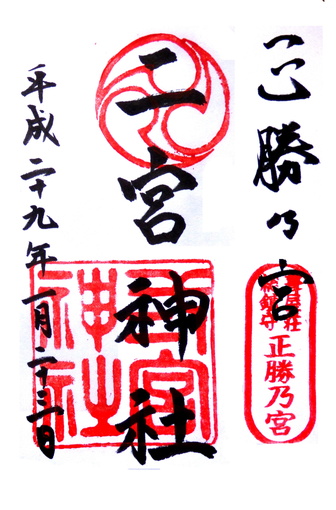 正勝乃宮
正勝乃宮
二宮神社
二宮神社
平成二十九年一月二十三日